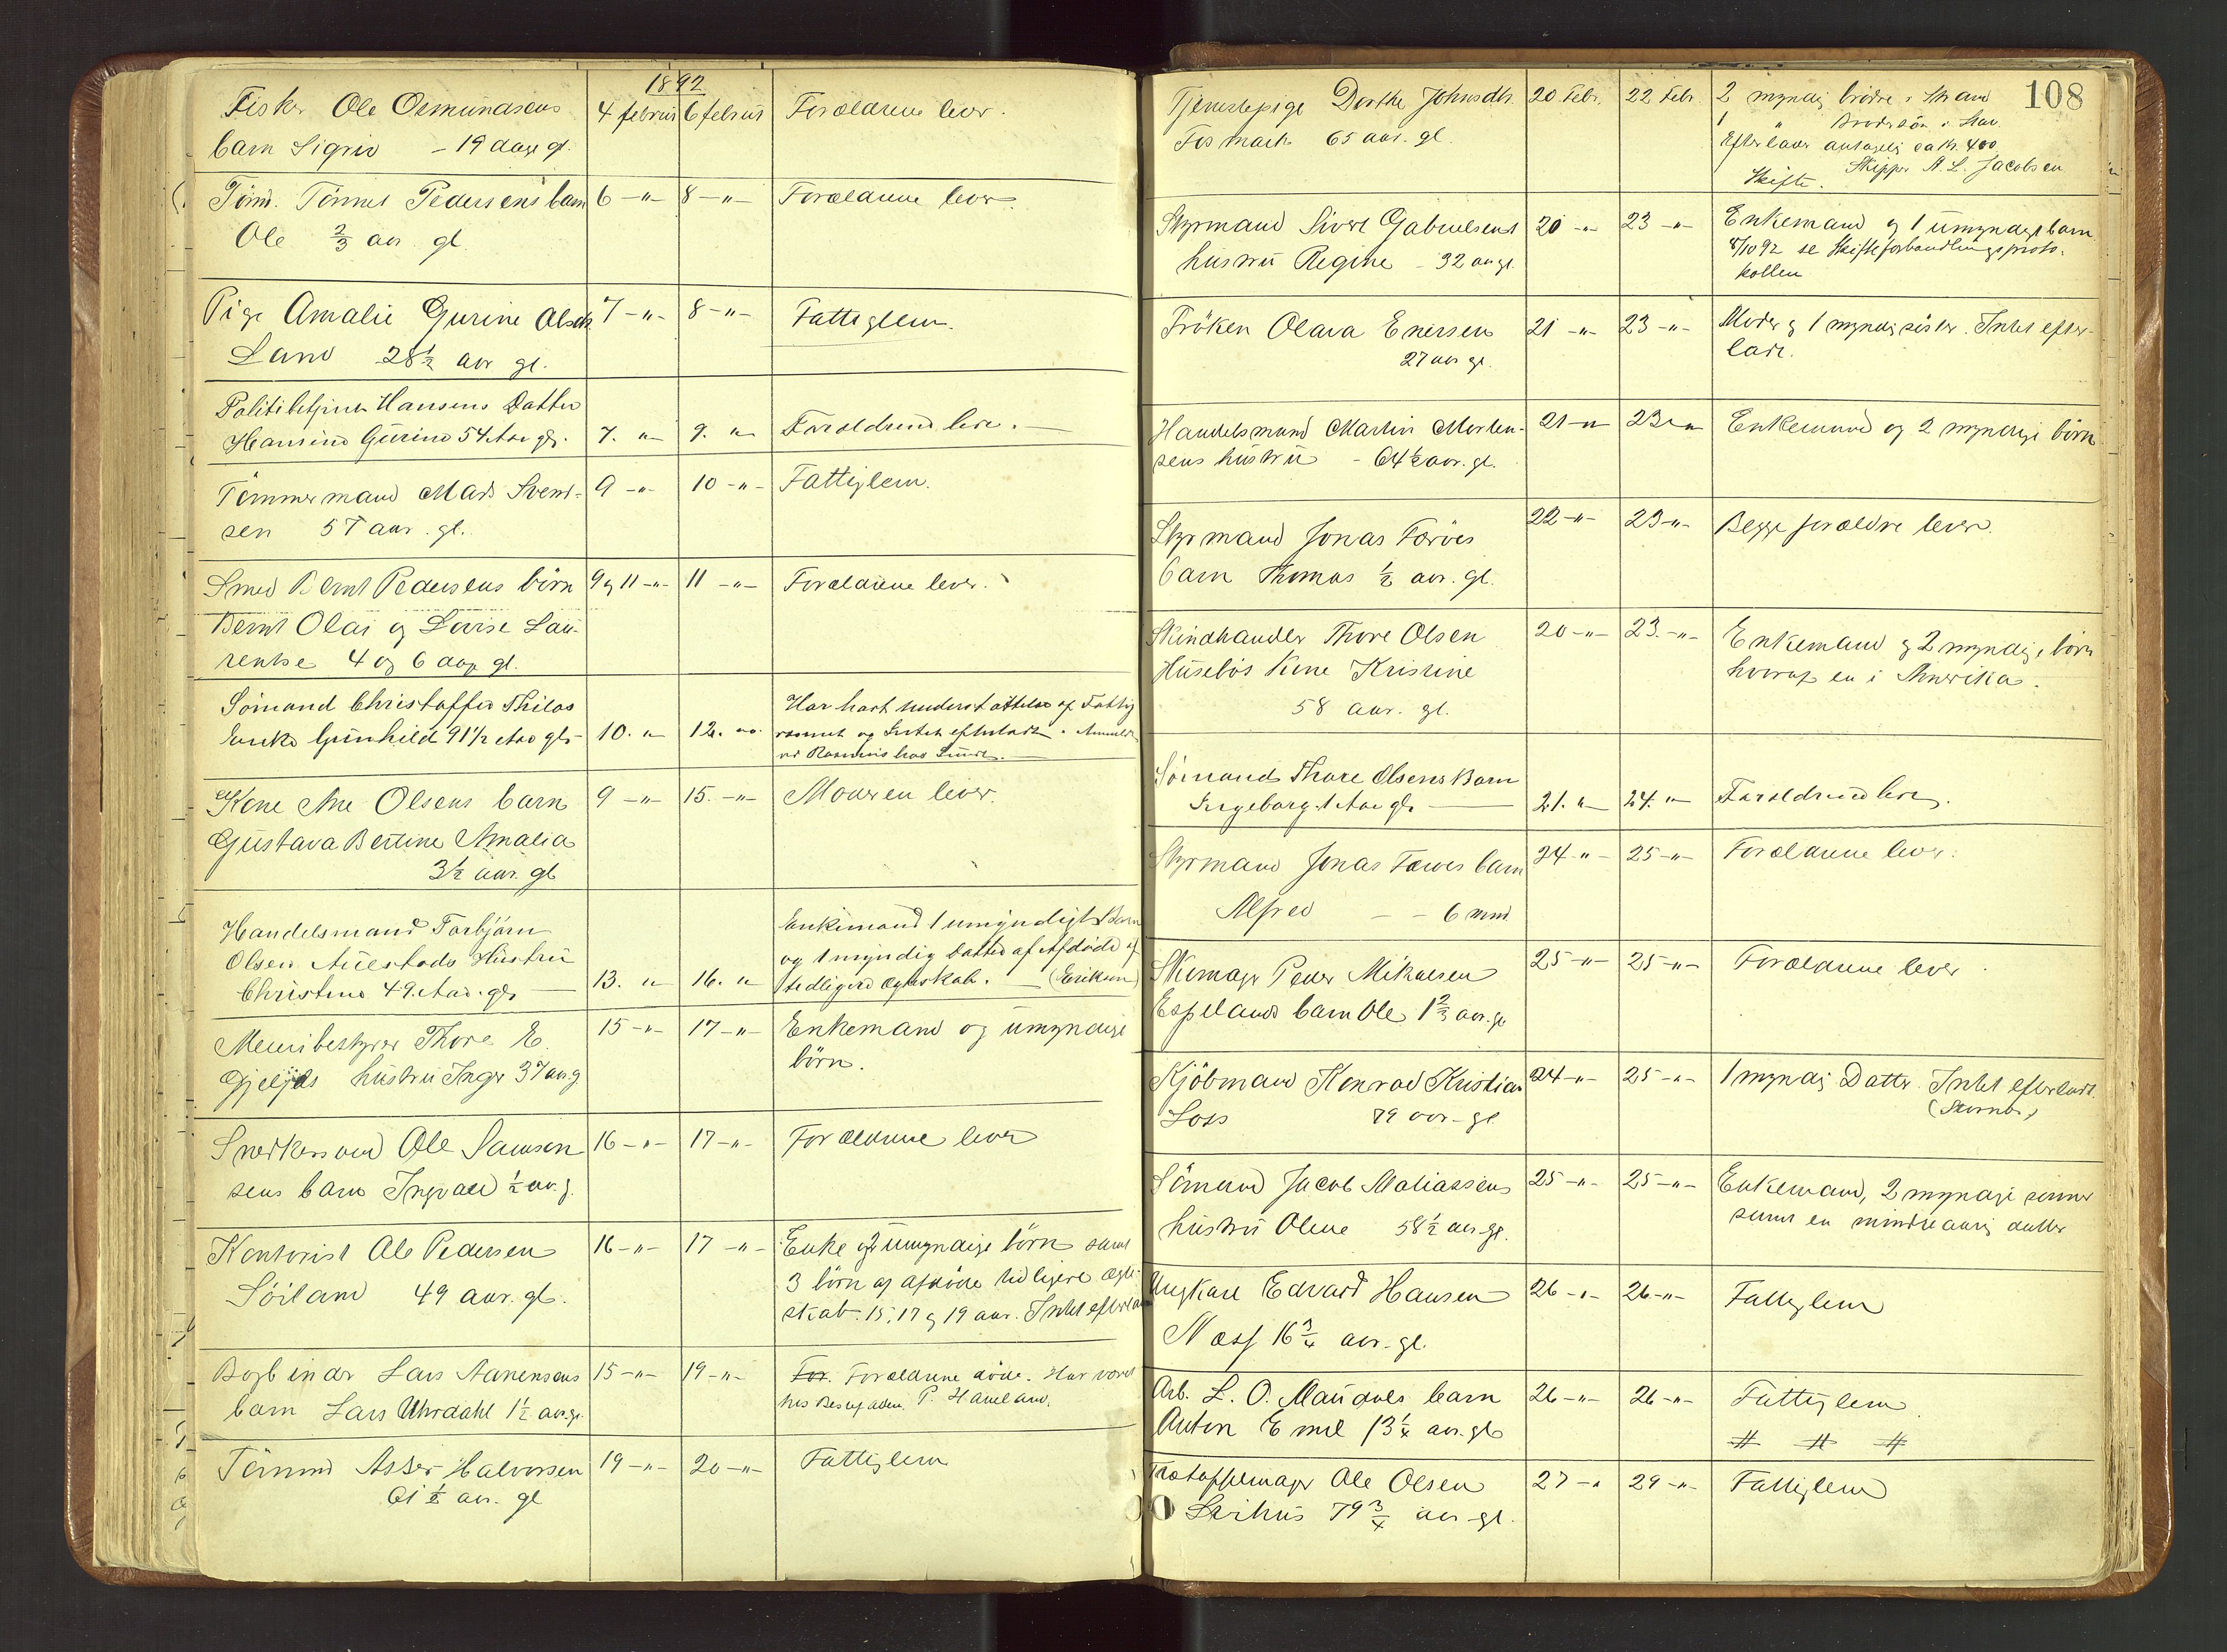 1892
Fisker Ole Osmundsens
barn Sigrid – 19 dage gl.
4 februar
6 februar
Forældrene lever.
Tømd. Tønnes Pedersens barn
Ole 2/3 aar gl.
6 –"–
8 –"–
Forældrene lever.
Pige Amalie Gurine Olsdtr.
Land 28½ aar gl.
7 –"–
8 –"–
Fattiglem.
Politibetjent Hansens Datter
Hansine Gurine 5¾ Aar gl.
7. "–
9. "–
Forældrene lever. —
Tømmermand Mads Svend-
sen 57 aar. gl.
9 –"–
10 –"–
Fattiglem.
Smed Bernt Pedersens børn
Bernt Olai og Lovise Lau-
rentse 4 og 6 dage gl.
9 og 11 –"–
11 –"–
Forældrene lever.
Sømand Christoffer Thilos
Enke Gunhild 91½ Aar gl.
10. "
12. "
Har havt understøttelse af Fattig
væsenet og Intet efterladt.
Kone Ane Olsens barn
Gustava Bertine Amalia
3½ aar. gl.
9 –"–
15. –"–
Moderen lever.
Handelsmand Torbjørn
Olsen Auestads Hustru
Christine 49. Aar. gl. —
13. "
16. "
Enkemand 1 umyndigt Barn
og 1 myndig datter af Afdøde af
tidligere ægteskab. — (Eriksen)
Meieribestyrer Thore E.
Gjeljds hustru Inger 37 aar. g.
15 –"–
17 –"–
Enkemand og umyndige
børn.
Snedkersvend Ole Samsen
sens barn Ingvald ½ aar. g.
16 –"–
17 –"–
Forældrene lever
Kontorist Ole Pedersen
Søiland 49 aar. gl.
16 –"–
17 –"–
Enke og 2 umyndige børn samt
3 børn af afdøde tidligere ægte-
skab. 15, 17 og 19 aar. Intet efterladt
Bogbinder Lars Aanensens
barn Lars Uhrdahl 1½ aar. gl.
15 –"–
19 –"–
For. Forældrene døde. Har været
hos Bestefaderen P. Haueland.
Tømmd Asser Halvorsen
61½ aar. gl
19 –"–
20 –"–
Fattiglem
108
Tjenestepige Dorthe Johnsdtr.
Fosmark 65 aar. gl.
20. Febr.
22 Febr.
2 myndig brødre i Strand
1 " Brodersøn i Stav.
Efterlader antagelig ca kr. 400
Skipper A. L. Jacobsen
Skifte.
Styrmand Sivert Gabrielsens
hustru Regine – 32 aar gl.
20 –"–
23 –"–
Enkemand og 1 umyndigt barn
8/10 92 se Skifteforhandlingsproto-
kollen
Frøken Olava Enersen
27 aar gl.
21 –"–
23 –"–
Moder og 1 myndig søster. Intet efter-
ladt.
Handelsmand Martin Morten-
sens hustru – 64½ aar. gl.
21 –"
23 –"
Enkemand og 2 myndige børn
Styrmand Jonas Farves
barn Thomas ½ aar. gl.
22 –"–
23 –"–
Begge forældre lever.
Skindhandler Thore Olsen
Husebøs Kone Kristine
58 aar. gl.
20 –"–
23. –"–
Enkemand og 2 myndige børn
hvoraf en i Amerika.
Sømand Thore Olsens Barn
Ingeborg 1 Aar gl. —
21. "–
24. "–
Forældrene lever.
Styrmand Jonas Farves barn
Alfred – – 6 mnd
24 –"–
25 –"–
Forældrene lever.
Skomager Peder Mikalsen
Espelands barn Ole 1 2/3 aar. gl
25 –"–
25 –"–
Forældrene lever
Kjøbmand Konrad Kristian
Loss 79 aar. gl
24 –"–
25 –"–
1 myndig Datter. Intet efterladt.
Sømand Jacob Matiassens
hustru Olene 58½ aar. gl.
25 –"–
25 –"–
Enkemand, 2 myndige sønner
samt en mindreaarig datter
Ungkarl Edvard Hansen
Næss 16¾ aar. gl.
26 –"–
26 –"–
Fattiglem
Arb. L. O. Maudals barn
Anton Emil 13¼ aar. gl
26 –"–
26 –"–
Fattiglem.
# # #
Træstøffelmager Ole Olsen
Skihus 79¾ aar gl.
27 –"
29 –"–
Fattiglem